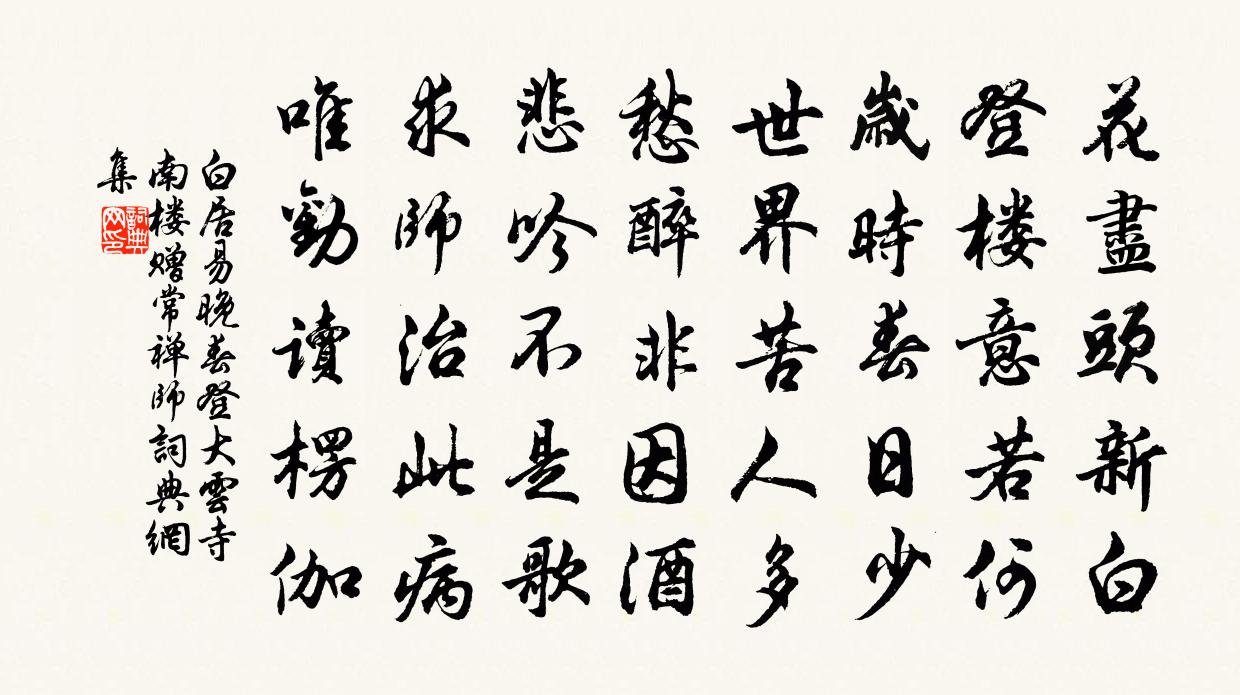 花盡頭新白
登楼意若何
歲時春日少
世界苦人多
愁醉非因酒
悲吟不是歌
求師治此病
唯勸讀楞伽
白居易晚春登大雲寺
南楼赠常禅師詞典網
集
詞典
网印